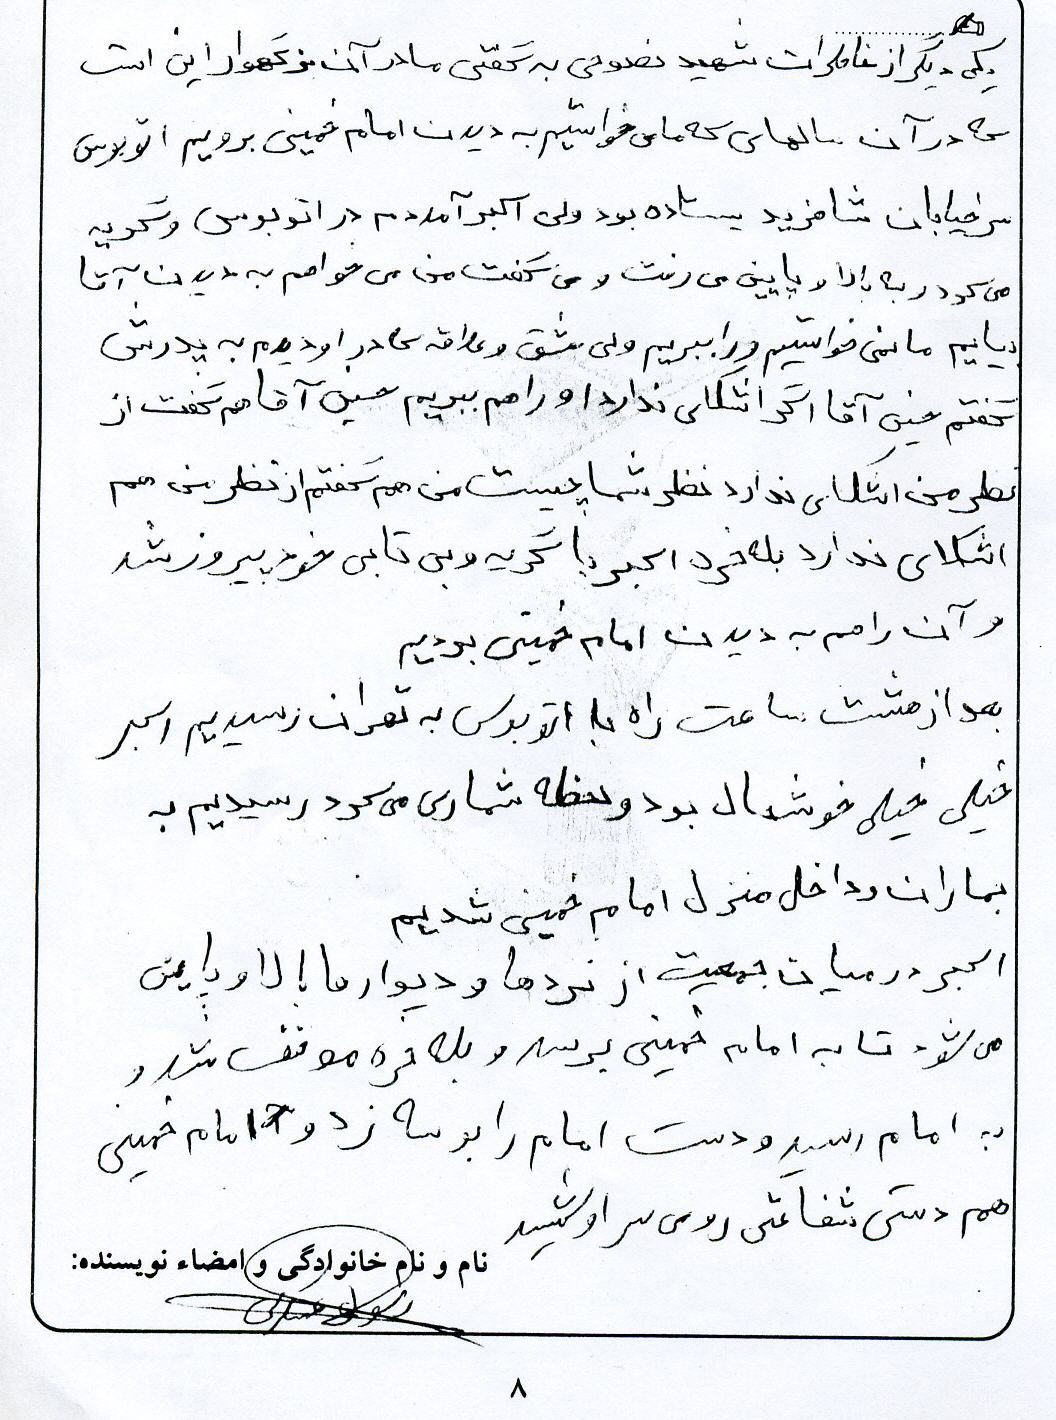 یکی دیگر از خاطرات شهید نصوحی به گفتی مادر آن بزرگوار این است
که در آن سالهای که مامی خواستیم به دیدن امام خمینی برویم اتوبوس
سرخیابان شافرید یستاده بود ولی اکبر آمد دم در اتوبوس و گریه
می کرد در به بالا و پایین می رفت و می گفت من می خواهم به دیدن آقا
بیایم ما نمی خواستیم ورا ببریم ولی عشق و علاقه که در او دیدم به پدرش
گفتم حسین آقا اگر اشکالی ندارد او را هم ببریم حسین آقا هم گفت از
نظر من اشکالی ندارد نظر شما چیست من هم گفتم از نظر من هم
اشکالای ندارد بلاخره اکبر با گریه و بی تابی خود پیروز شد
و آن را هم به دیدن امام خمینی بودیم
بعد از هشت ساعت راه با اتوبوس به تهران رسیدیم اکبر
خیلی خیلی خوشحال بود و لحظه شماری می کرد رسیدیم به
جماران و داخل منزل امام خمینی شدیم
اکبر در میان جمعیت از نردها و دیوارها بالا و پایین
می شود تا به امام خمینی برسد و بلاخره موفق شد و
به امام رسید و دست امام را بوسه زد و امام خمینی
هم دستی شفاعتی روی سر او کشید
نام و نام خانوادگی و امضاء نویسنده:
۸